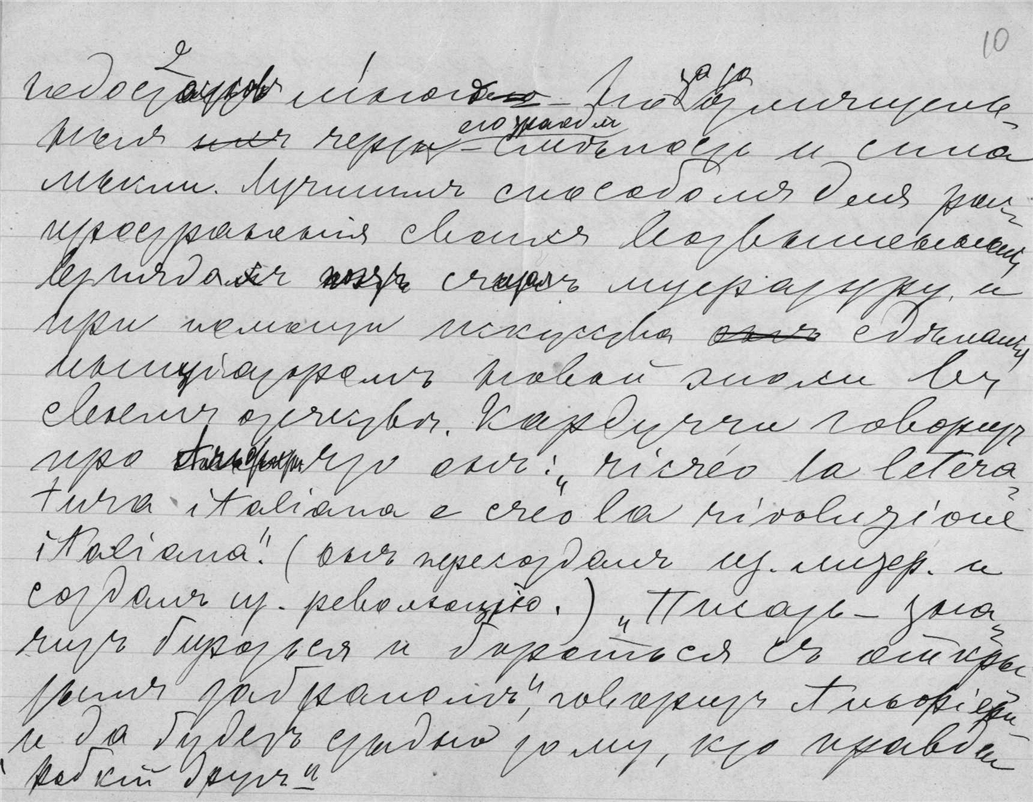 10
недостатковъ много – Но за то отличитель-
ныя черты его трагедiи – смѣлость и сила
мысли. Лучшимъ способомъ для рас-
пространенiя своихъ возвышенныхъ
взглядовъ считалъ литературу и
при помощи искусства сдѣлался
иницiаторомъ новой эпохи въ
своемъ отечествѣ. Кардуччи говоритъ
про что онъ: „ricreò la letera-
tura italiana e creò la rivoluzione
italiana". (онъ пересоздалъ ит. литер. и
создалъ ит. революцiю.) „Писать – зна-
читъ бороться и бороться съ откры-
тымъ забраломъ", говоритъ Альфiери
и да будетъ стыдно тому, кто правды
робкiй другъ"